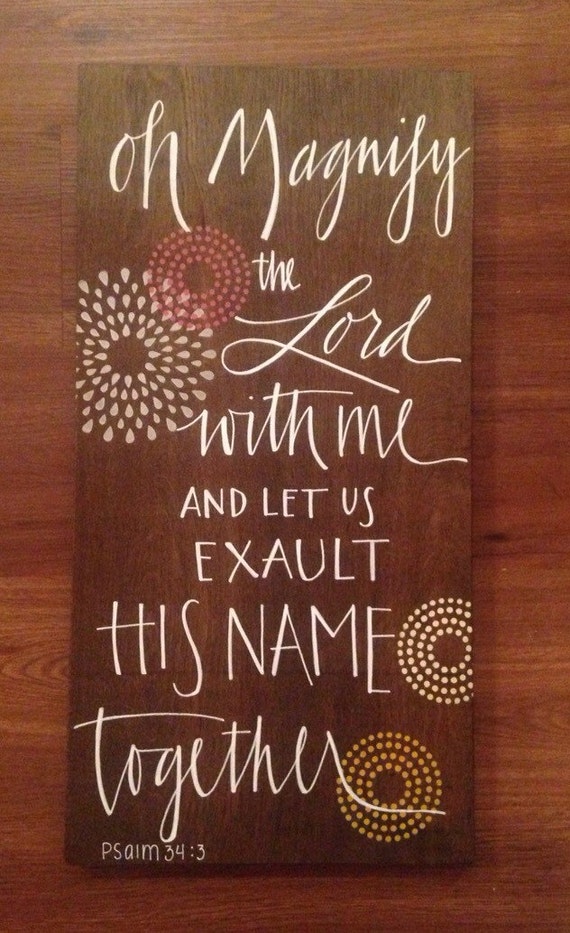 oh Magnify
the
Lord
with me
AND LET US
EXAULT
HIS NAME
together
Psalm 34:3